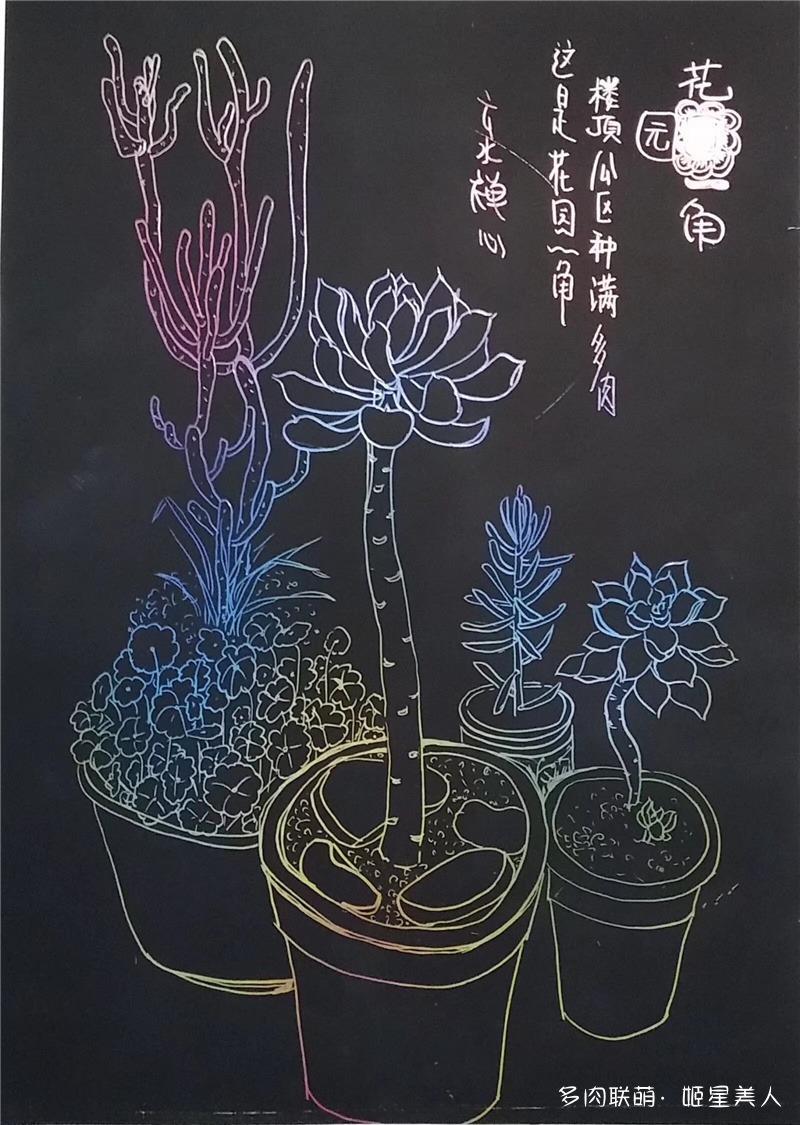 花园一角
楼顶公区种满多肉
这是花园一角
水禅心
多肉联萌·姬星美人